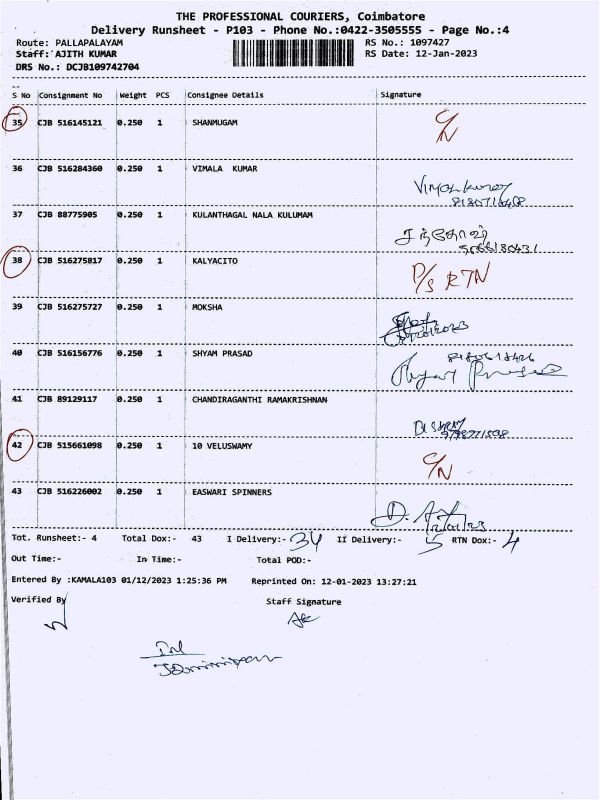 THE PROFESSIONAL COURIERS, Coimbatore
Delivery Runsheet - P103 - Phone No.:0422-3505555 - Page No.:4
Route: PALLAPALAYAM RS No.: 1097427
Staff: AJITH KUMAR RS Date: 12-Jan-2023
DRS No.: DCJB109742704
S No Consignment No Weight PCS Consignee Details Signature
35 CJB 516145121 0.250 1 SHANMUGAM C/N
36 CJB 516284360 0.250 1 VIMALA KUMAR
37 CJB 88775905 0.250 1 KULANTHAGAL NALA KULUMAM
38 CJB 516275817 0.250 1 KALYACITO D/S RTN
39 CJB 516275727 0.250 1 MOKSHA
40 CJB 516156776 0.250 1 SHYAM PRASAD
41 CJB 89129117 0.250 1 CHANDIRAGANTHI RAMAKRISHNAN
42 CJB 515661098 0.250 1 10 VELUSWAMY C/N
43 CJB 516226002 0.250 1 EASWARI SPINNERS
12/01/23
Tot. Runsheet:- 4 Total Dox:- 43 I Delivery:- 34 II Delivery:- 5 RTN Dox:- 4
Out Time:- In Time:- Total POD:-
Entered By :KAMALA103 01/12/2023 1:25:36 PM Reprinted On: 12-01-2023 13:27:21
Verified By Staff Signature